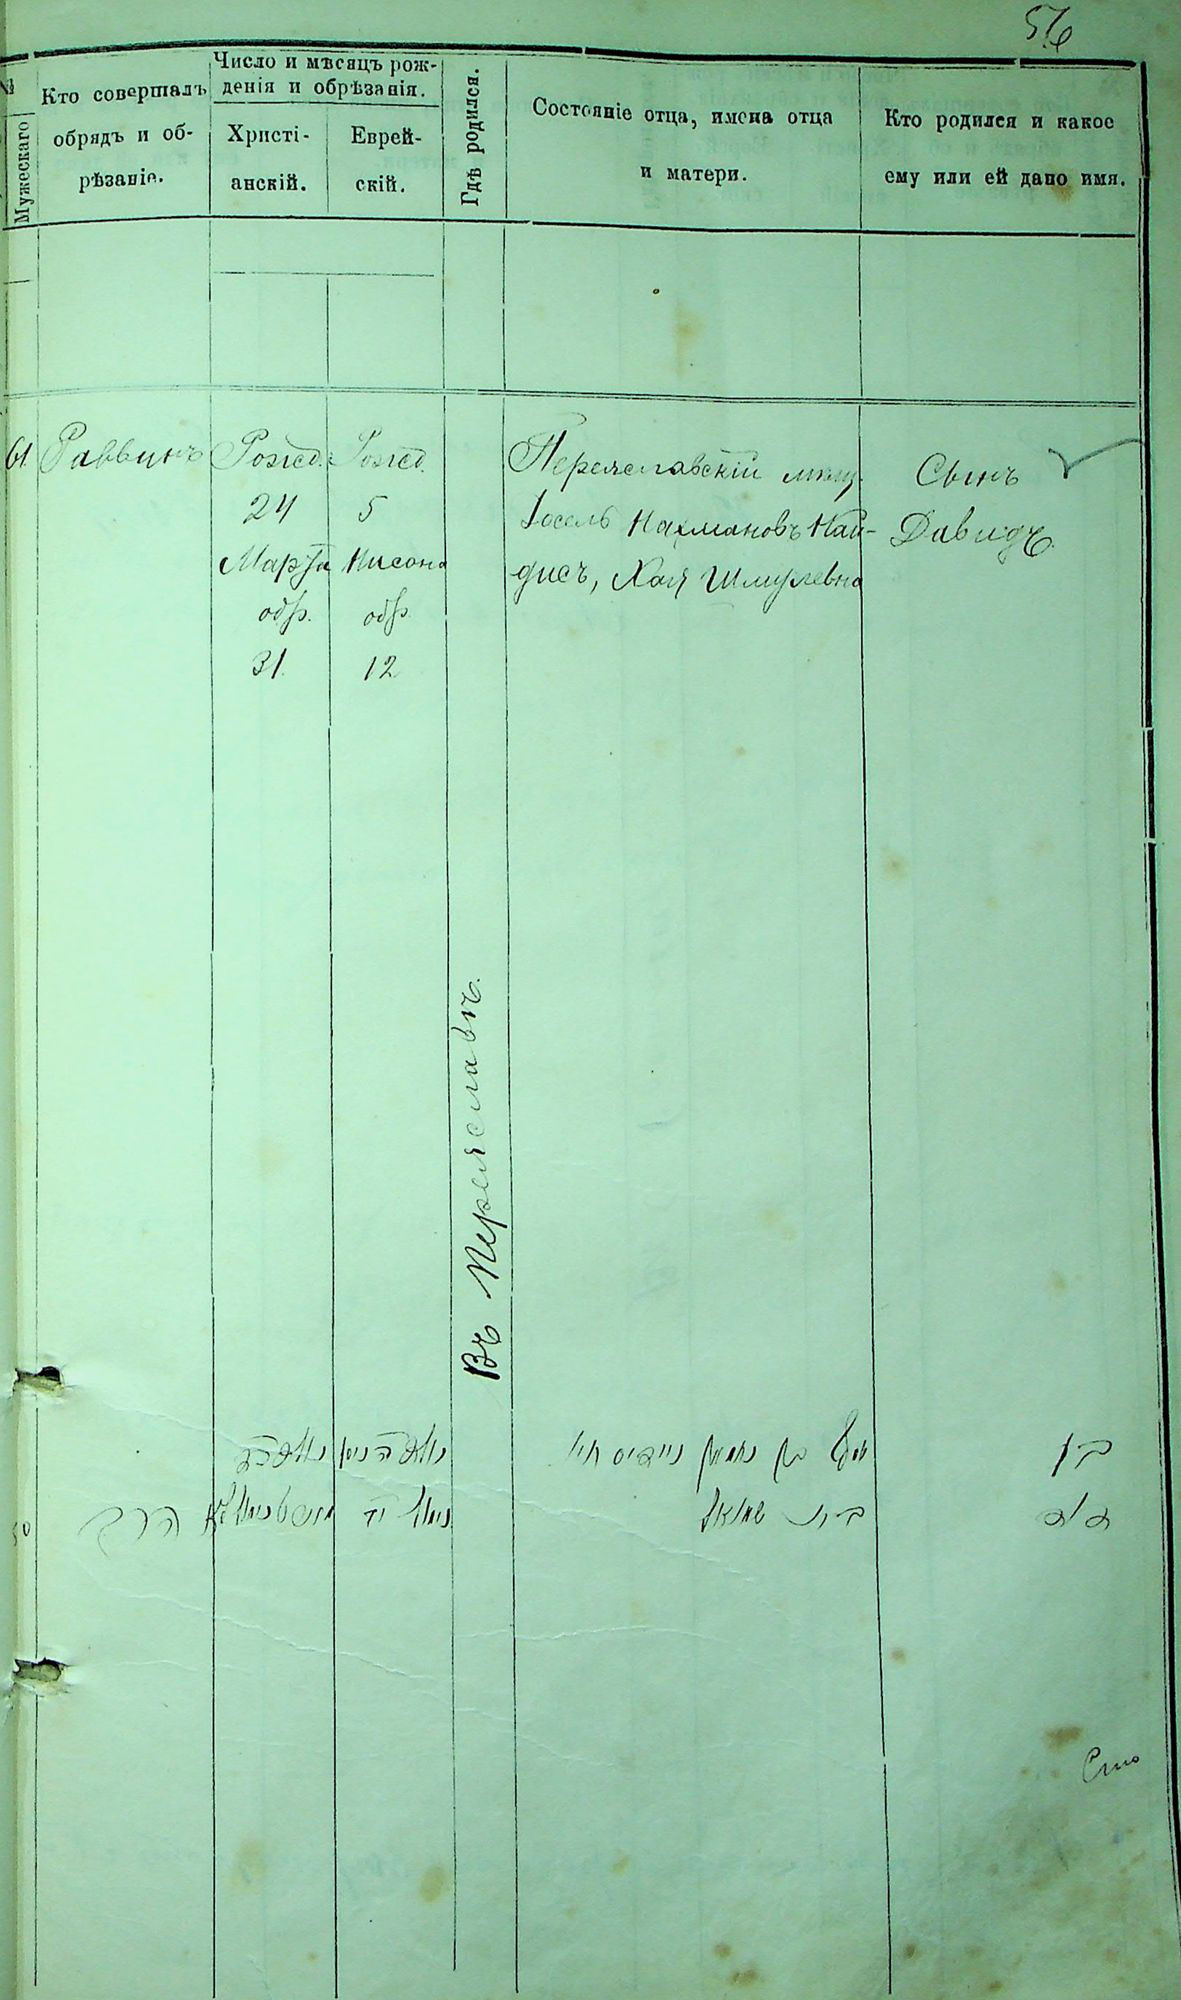 56
№
Мужескаго
Кто совершалъ
обрядъ и об-
рѣзаніе.
Число и мѣсяцъ рож-
денія и обрѣзанія.
Христі-
анскій.
Еврей-
скій.
Гдѣ родился.
Состояніе отца, имена отца
и матери.
Кто родился и какое
ему или ей дано имя.
61
Раввинъ
Рожд.
24
Марта
обр.
31.
Рожд.
5
Нисона
обр.
12
Въ Переяславѣ.
Переяславскій мѣщ.
Іосель Нахмановъ Най-
дисъ, Хая Шмулевна
Сынъ
Давидъ.
בן נחמן ניידיס
שמואל
הרב
בן
דוד
Сто